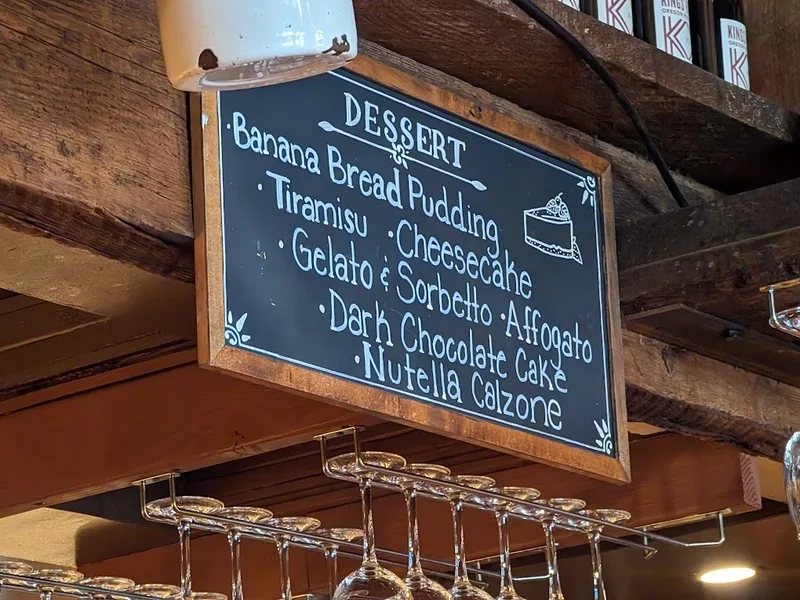 DESSERT
·Banana Bread Pudding
·Tiramisu ·Cheesecake
·Gelato & Sorbetto ·Affogato
·Dark Chocolate Cake
·Nutella Calzone
KINGS
OREGON
K
KINGS
OREGON
K